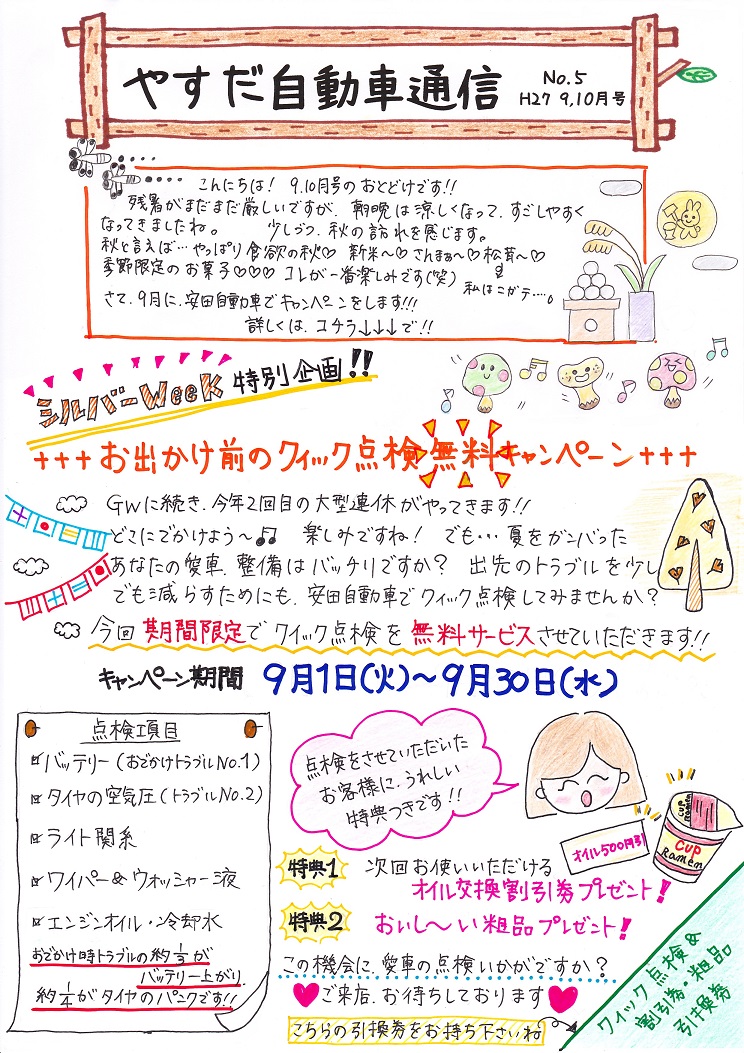 やすだ自動車通信
No.5
H27 9,10月号
こんにちは! 9.10月号のおとどけです!!
残暑がまだまだ厳しいですが、朝晩は涼しくなって、すごしやすく
なってきましたね。 少しづつ、秋の訪れを感じます。
秋と言えば…やっぱり食欲の秋♡ 新米〜♡ さんまぁ〜♡ 松茸〜♡
季節限定のお菓子♡♡♡ コレが一番楽しみです(笑) 私はニガテ…。
さて、9月に、安田自動車でキャンペーンをします!!!
詳しくは、コチラ↓↓↓で!!
シルバーWeeK 特別企画!!
+++お出かけ前のクイック点検無料キャンペーン+++
GWに続き、今年2回目の大型連休がやってきます!!
どこにでかけよう〜♫ 楽しみですね! でも…夏をガンバった
あなたの愛車、整備はバッチリですか? 出先のトラブルを少し
でも減らすためにも、安田自動車でクイック点検してみませんか?
今回期間限定でクイック点検を無料サービスさせていただきます!!
キャンペーン期間 9月1日(火)〜9月30日(水)
点検項目
☑バッテリー(おでかけトラブルNo.1)
☑タイヤの空気圧(トラブルNo.2)
☑ライト関系
☑ワイパー&ウォッシャー液
☑エンジンオイル・冷却水
おでかけ時トラブルの約1/3が
バッテリー上がり、
約1/4がタイヤのパンクです!!
点検をさせていただいた
お客様に、うれしい
特典つきです!!
オイル500円引
Cup Ramen
CUP
Ramen
特典1 次回お使いいただける
オイル交換割引券プレゼント!
特典2 おいし〜い粗品プレゼント!
この機会に、愛車の点検いかがですか?
♥ご来店、お待ちしております♥
こちらの引換券をお持ち下さいね
クイック点検&
割引券・粗品
引換券